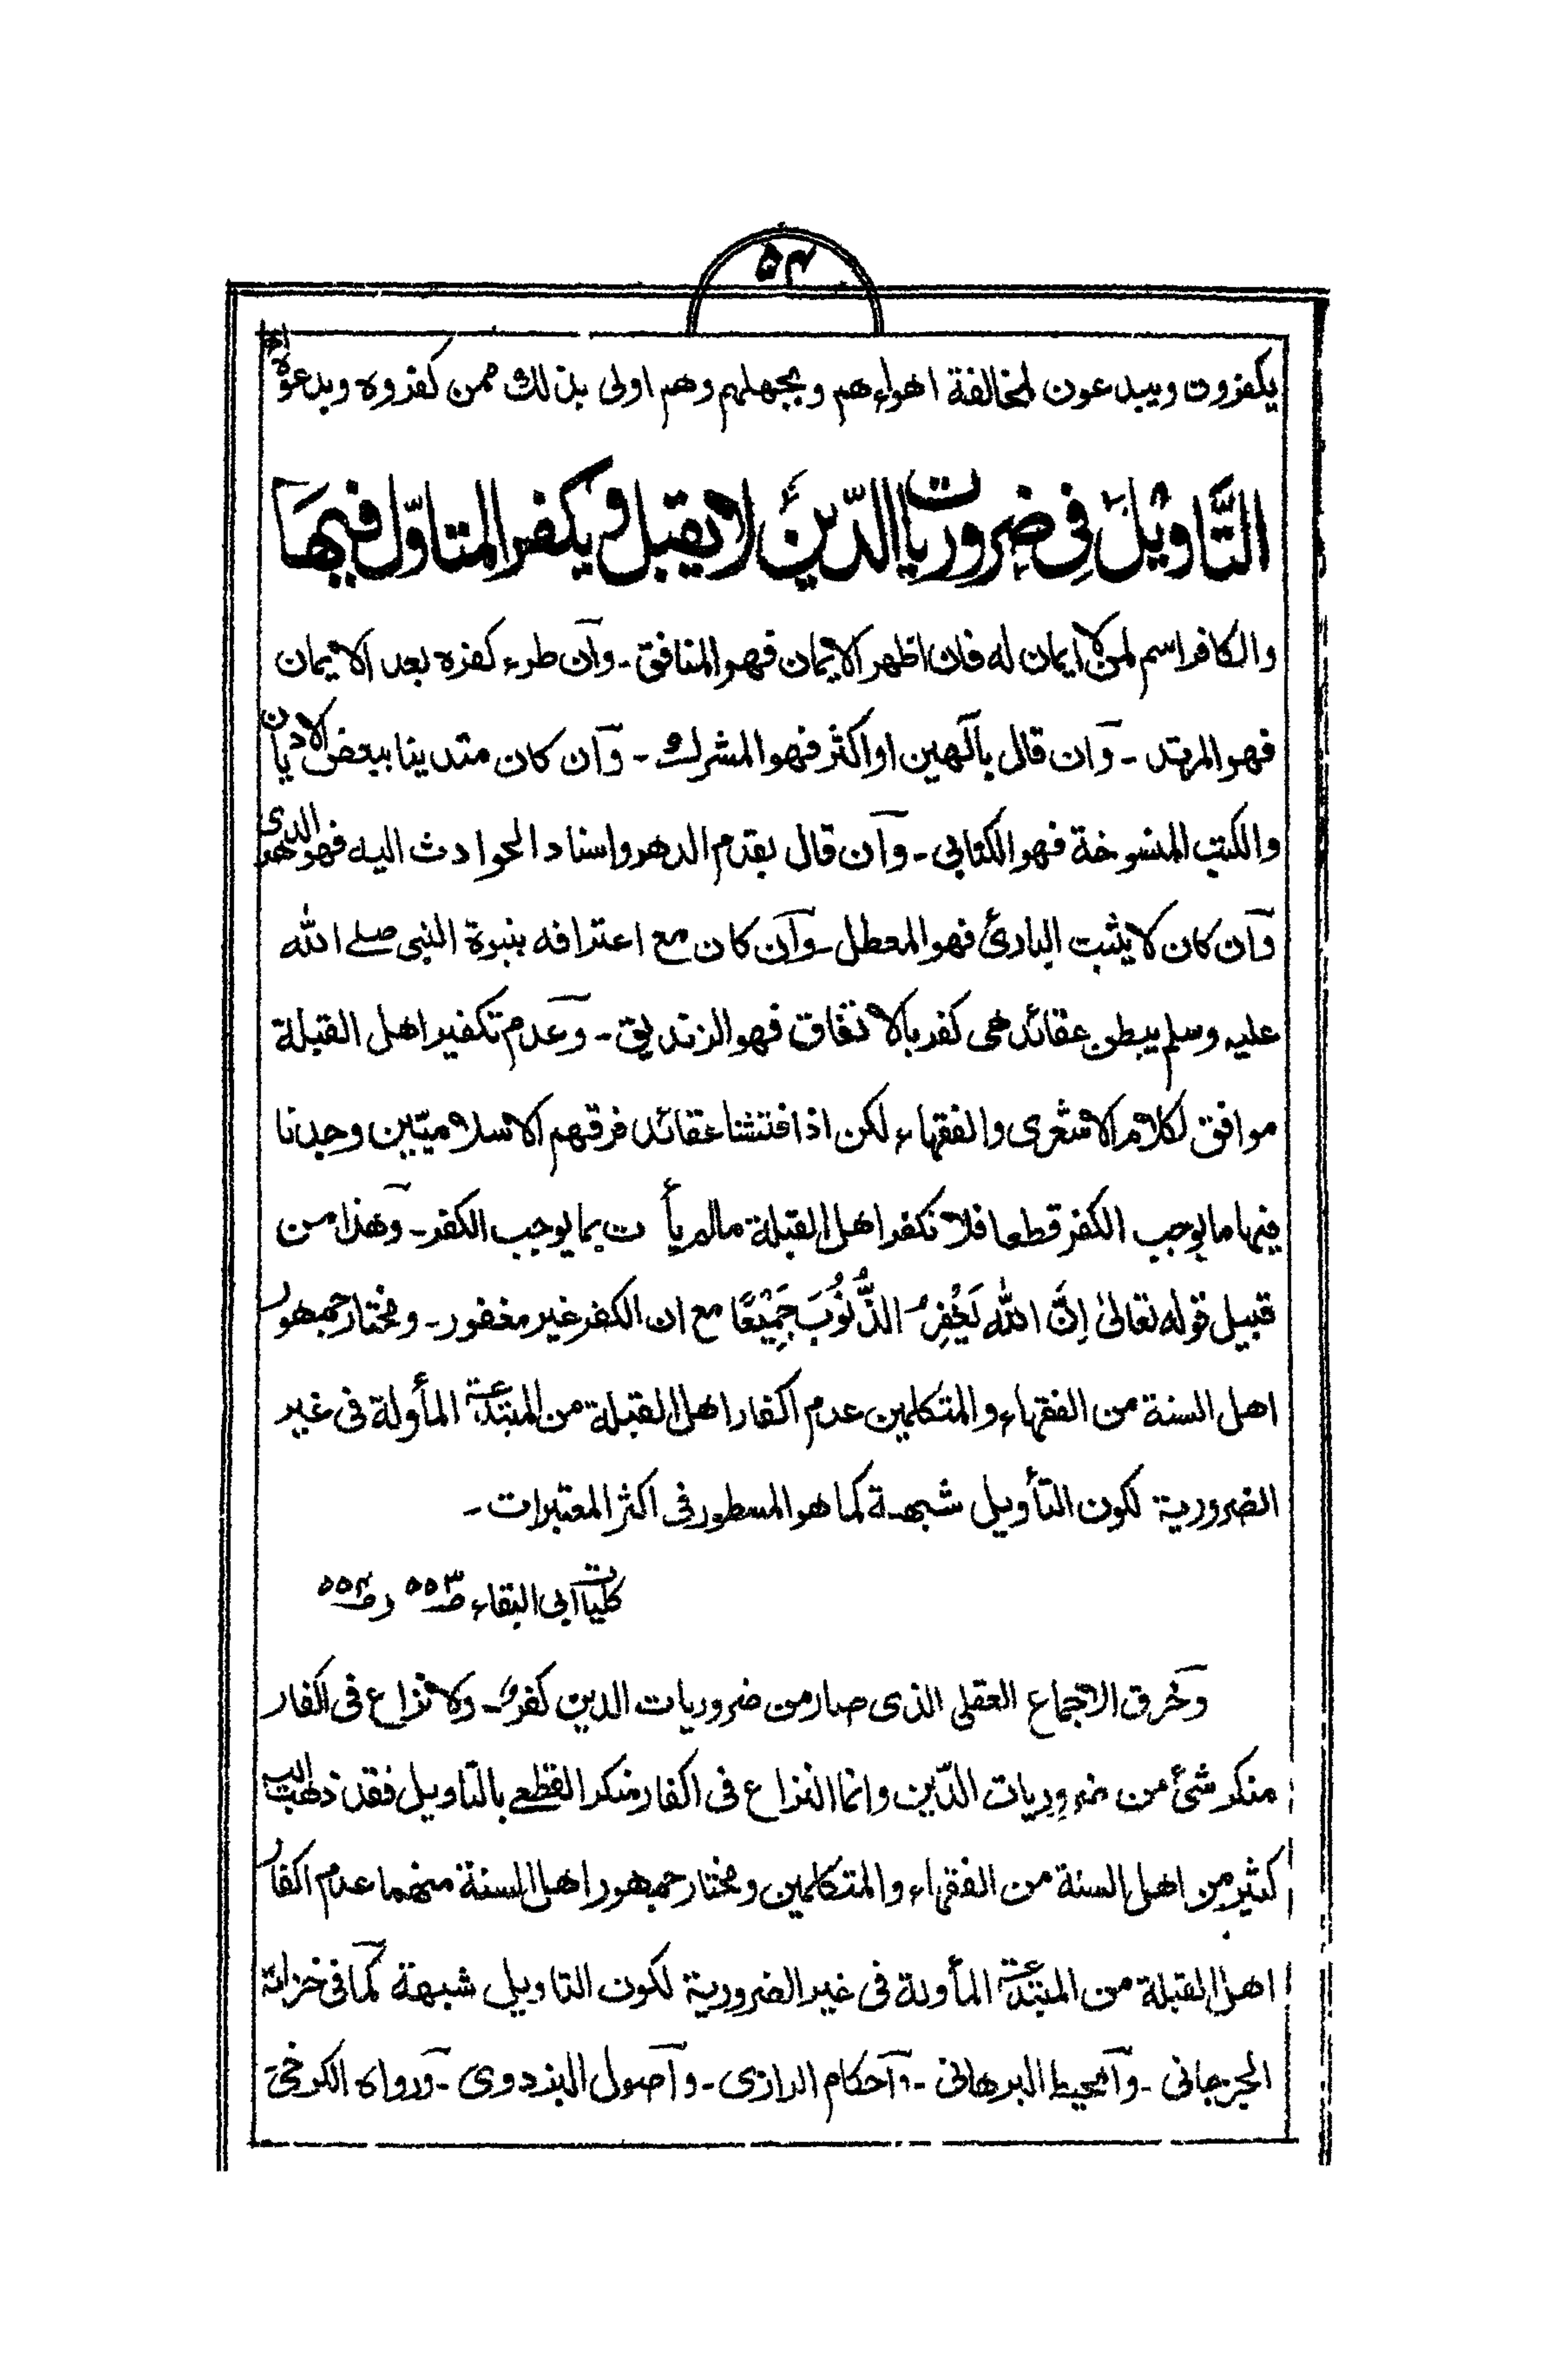 ۵۴
يكفرون ويبدعون لمخالفة اهواءهم وبجهلهم وهم اولى بذلك ممن كفروه وبدعوه اه
التَّاوِيْلُ فِي ضروريات الدّينِ لا يقبل ويكفر المتاوّل فيها
والكافر اسم لمن لا ايمان له فان اظهر الايمان فهو المنافق ـ وان طرء كفره بعد الايمان
فهو المرتد ـ وان قال بآلهين او اكثر فهو المشرك ـ وان كان متدينا ببعض الاديان
والكتب المنسوخة فهو الكتابي ـ وان قال بقدم الدهر واسناد الحوادث اليه فهو الدهرى
وان كان لا يثبت البارئ فهو المعطل ـ وان كان مع اعترافه بنبوة النبى صلے الله
عليه وسلم يبطن عقائد هى كفر بالاتفاق فهو الزنديق ـ وعدم تكفير اهل القبلة
موافق لكلام الاشعرى والفقهاء لكن اذا فتشنا عقائد فرقهم الاسلاميّين وجدنا
فيها ما يوجب الكفر قطعا فلا نكفر اهل القبلة مالم يأت بما يوجب الكفر ـ وهذا من
قبيل قوله تعالىٰ اِنَّ اللّٰه يَغْفِرُ الذُّنُوْبَ جَمِيْعًا مع ان الكفر غير مغفور ـ ومختار جمهور
اهل السنة من الفقهاء والمتكلمين عدم اكفار اهل القبلة من المبتدعة المأولة فى غير
الضرورية لكون التأويل شبهة كما هو المسطور فى اكثر المعتبرات ـ
كليات ابى البقاء صـ۵۵۳ وصـ۵۵۴
وخرق الاجماع العقلى الذى صار من ضروريات الدين كفرٌ ـ ولا نزاع فى اكفار
منكر شئ من ضروريات الدّين وانما النزاع فى اكفار منكر القطعے بالتاويل فقد ذهب اليه
كثير من اهل السنة من الفقهاء والمتكلمين ومختار جمهور اهل السنة منهما عدم اكفار
اهل القبلة من المبتدعة المأولة فى غير الضرورية لكون التاويل شبهة كما فى خزانة
الجرجانى ـ والمحيط البرهانى ـ واحكام الرازى ـ واصول البزدوى ـ ورواه الكرخى